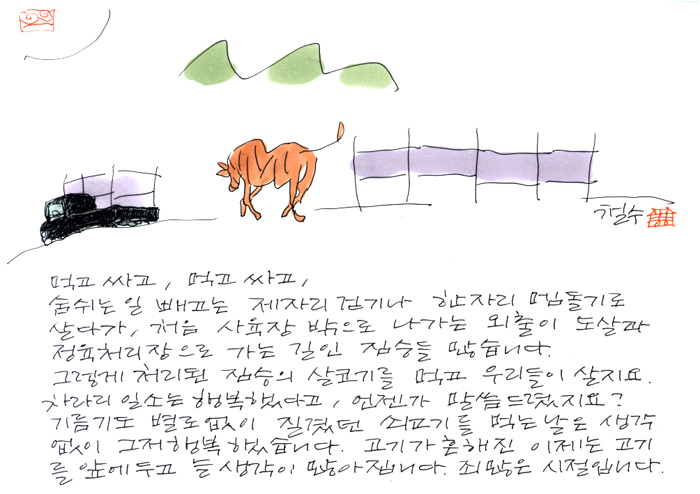 철수
먹고 싸고, 먹고 싸고,
숨쉬는 일 빼고는 제자리 걷기나 한자리 맴돌기로
살다가, 처음 사육장 밖으로 나가는 외출이 도살과
정육처리장으로 가는 길인 짐승들 많습니다.
그렇게 처리된 짐승의 살코기를 먹고 우리들이 살지요.
차라리 일소는 행복했다고, 언젠가 말씀드렸지요?
기름기도 별로없이 질겼던 쇠고기를 먹는날은 생각
없이 그저행복 하였습니다. 고기가 흔해진 이제는 고기
를 앞에두고 늘 생각이 많아집니다. 죄많은 시절입니다.